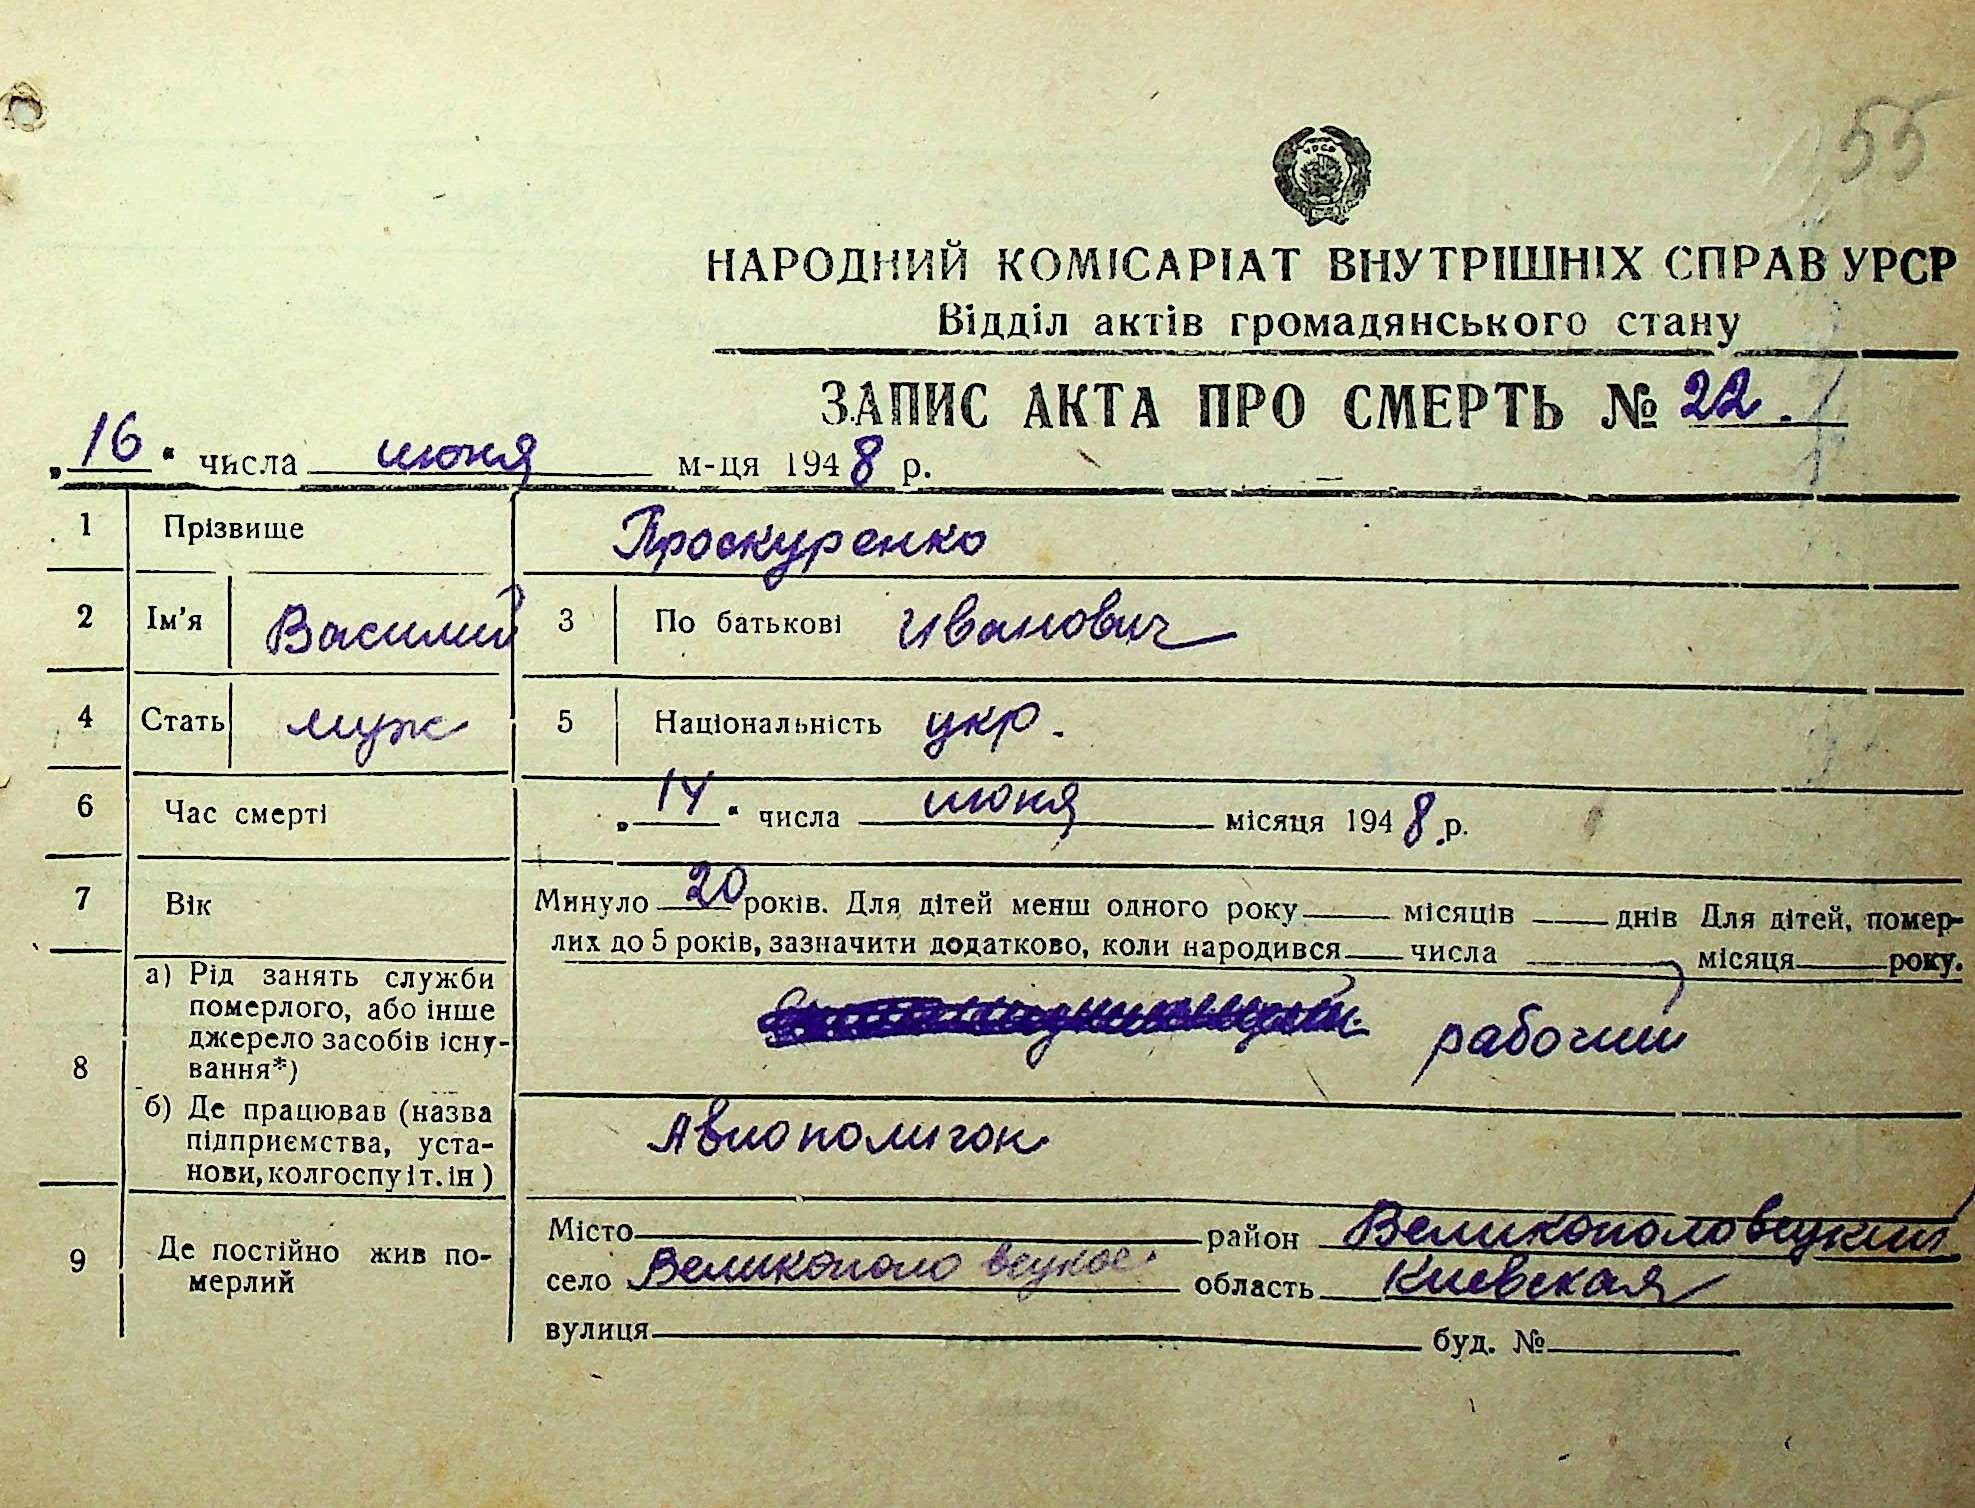 55
НАРОДНИЙ КОМІСАРІАТ ВНУТРІШНІХ СПРАВ УРСР
Відділ актів громадянського стану
ЗАПИС АКТА ПРО СМЕРТЬ № 22.
„16“ числа июня м-ця 1948 р.
1 Прізвище Проскуренко
2 Ім'я Василий 3 По батькові Иванович
4 Стать муж 5 Національність укр.
6 Час смерті „14“ числа июня місяця 1948 р.
7 Вік Минуло 20 років. Для дітей менш одного року місяців днів Для дітей, помер-
лих до 5 років, зазначити додатково, коли народився числа місяця року.
8 а) Рід занять служби
померлого, або інше
джерело засобів існу-
вання*)
рабочий
б) Де працював (назва
підприємства, уста-
нови, колгоспу і т. ін)
Авиополигон
9 Де постійно жив по-
мерлий
Місто район Великополовецкий
село Великополовецкое область Киевская
вулиця буд. №